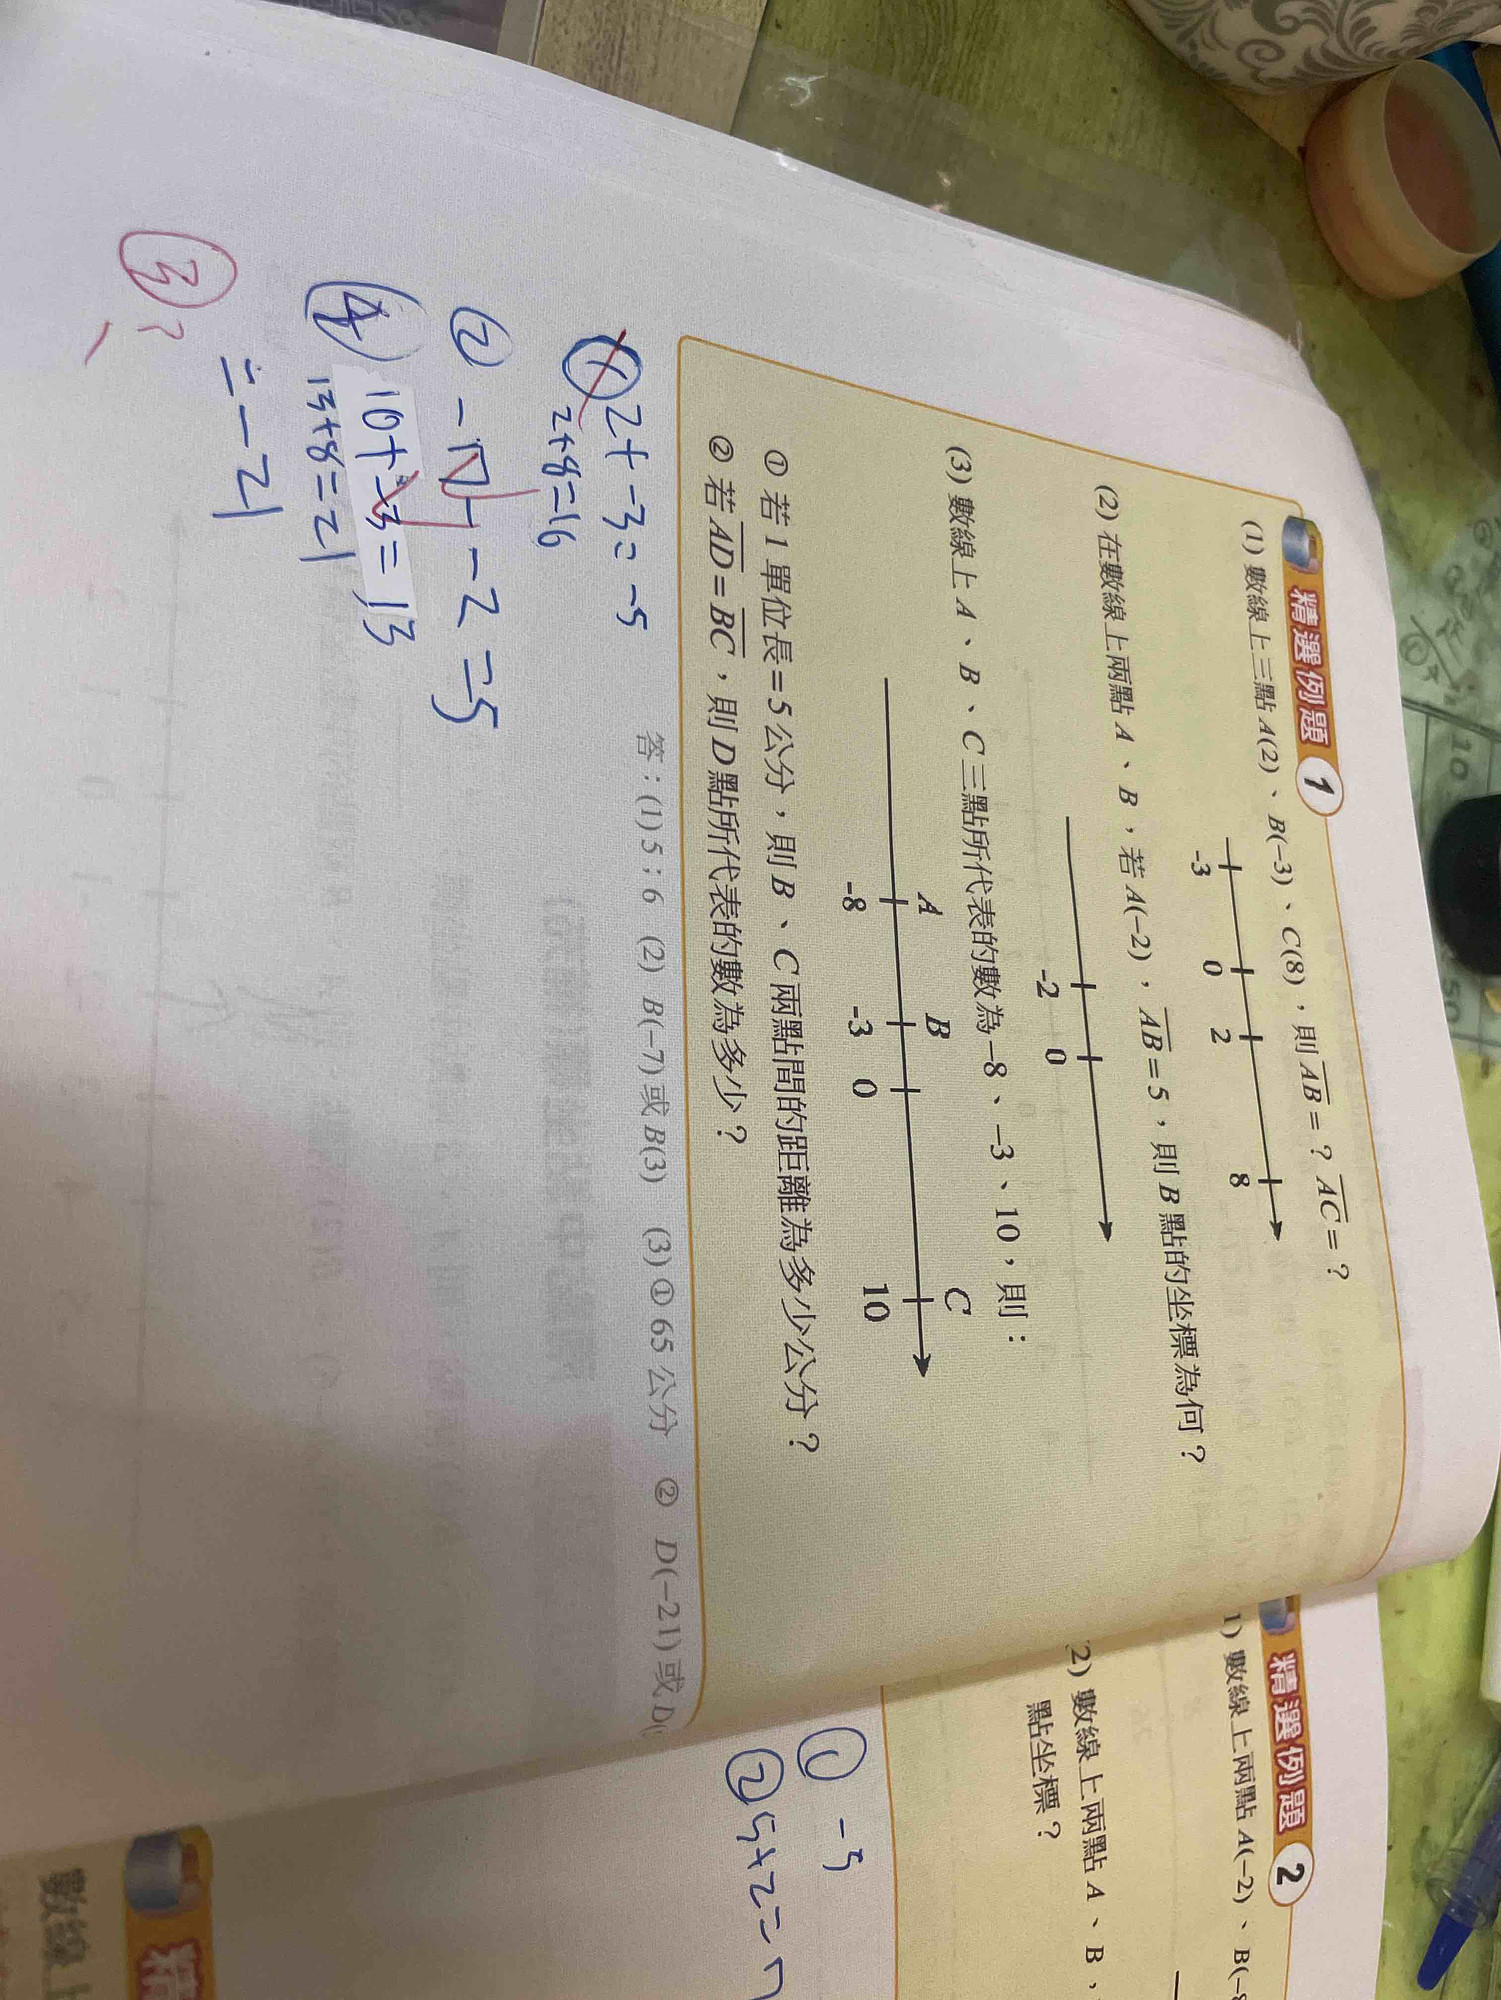 精選例題 1
(1) 數線上三點 A(2)、B(−3)、C(8)，則 AB = ? AC = ?
-3 0 2 8
(2) 在數線上兩點 A、B，若 A(−2)，AB = 5，則 B 點的坐標為何？
-2 0
(3) 數線上 A、B、C 三點所代表的數為 −8、−3、10，則：
A B C
-8 -3 0 10
① 若 1 單位長 = 5 公分，則 B、C 兩點間的距離為多少公分？
② 若 AD = BC，則 D 點所代表的數為多少？
答：(1) 5；6 (2) B(−7) 或 B(3) (3) ① 65 公分 ② D(−21) 或 D(
2+-3=-5
2+8=16
② -7--2=5
④ 10+-3=13
13+8=21
=-21
③ ?
精選例題 2
1) 數線上兩點 A(−2)、B(−8
2) 數線上兩點 A、B，
點坐標？
① -5
② 5+2=7
精
數線上